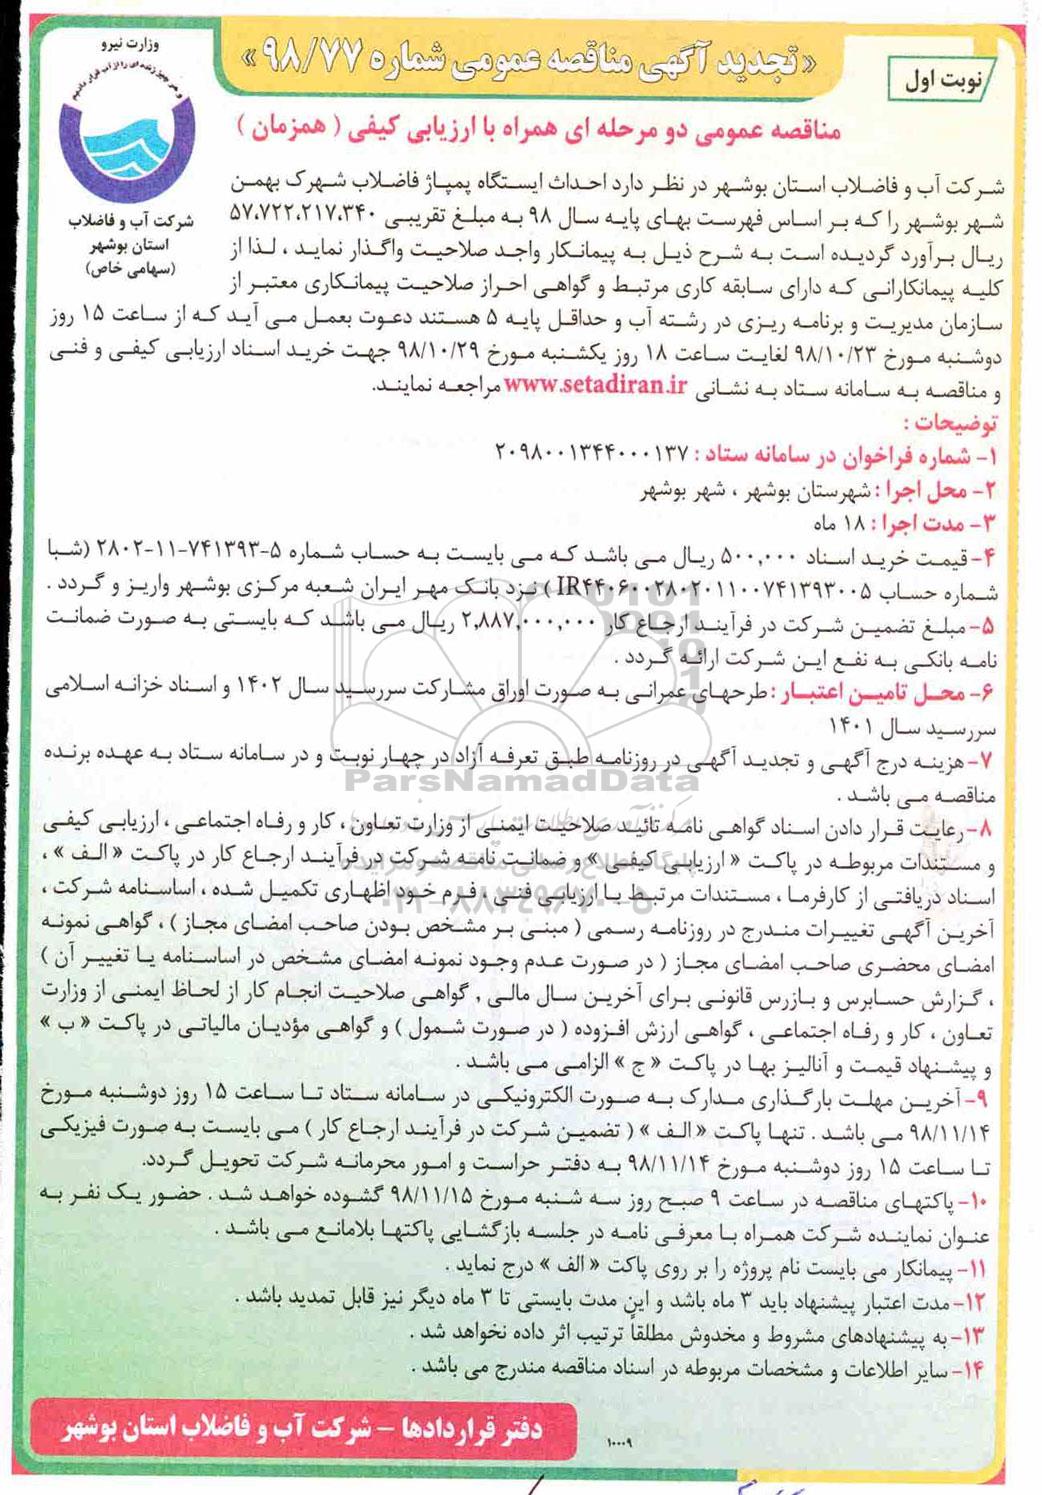 نوبت اول
«تجدید آگهی مناقصه عمومی شماره ۹۸/۷۷»
وزارت نیرو
و هر چیز زنده ای را از آب قرار دادیم
شرکت آب و فاضلاب
استان بوشهر
(سهامی خاص)
مناقصه عمومی دو مرحله ای همراه با ارزیابی کیفی ( همزمان )
شرکت آب و فاضلاب استان بوشهر در نظر دارد احداث ایستگاه پمپاژ فاضلاب شهرک بهمن
شهر بوشهر را که بر اساس فهرست بهای پایه سال ۹۸ به مبلغ تقریبی ۵۷،۷۲۲،۲۱۷،۳۴۰
ریال برآورد گردیده است به شرح ذیل به پیمانکار واجد صلاحیت واگذار نماید ، لذا از
کلیه پیمانکارانی که دارای سابقه کاری مرتبط و گواهی احراز صلاحیت پیمانکاری معتبر از
سازمان مدیریت و برنامه ریزی در رشته آب و حداقل پایه ۵ هستند دعوت بعمل می آید که از ساعت ۱۵ روز
دوشنبه مورخ ۹۸/۱۰/۲۳ لغایت ساعت ۱۸ روز یکشنبه مورخ ۹۸/۱۰/۲۹ جهت خرید اسناد ارزیابی کیفی و فنی
و مناقصه به سامانه ستاد به نشانی www.setadiran.ir مراجعه نمایند.
توضیحات :
۱- شماره فراخوان در سامانه ستاد : ۲۰۹۸۰۰۱۳۴۴۰۰۰۱۳۷
۲- محل اجرا : شهرستان بوشهر ، شهر بوشهر
۳- مدت اجرا : ۱۸ ماه
۴- قیمت خرید اسناد ۵۰۰,۰۰۰ ریال می باشد که می بایست به حساب شماره ۵-۷۴۱۳۹۳-۱۱-۲۸۰۲ (شبا
شماره حساب IR۴۴۰۶۰۰۲۸۰۲۰۱۱۰۰۷۴۱۳۹۳۰۰۵ ) نزد بانک مهر ایران شعبه مرکزی بوشهر واریز و گردد .
۵- مبلغ تضمین شرکت در فرآیند ارجاع کار ۲,۸۸۷,۰۰۰,۰۰۰ ریال می باشد که بایستی به صورت ضمانت
نامه بانکی به نفع این شرکت ارائه گردد .
۶- محل تامین اعتبار : طرحهای عمرانی به صورت اوراق مشارکت سررسید سال ۱۴۰۲ و اسناد خزانه اسلامی
سررسید سال ۱۴۰۱
۷- هزینه درج آگهی و تجدید آگهی در روزنامه طبق تعرفه آزاد در چهار نوبت و در سامانه ستاد به عهده برنده
ParsNamadData
مناقصه می باشد .
۸- رعایت قرار دادن اسناد گواهی نامه تائید صلاحیت ایمنی از وزارت تعاون ، کار و رفاه اجتماعی ، ارزیابی کیفی
و مستندات مربوطه در پاکت « ارزیابی کیفی » و ضمانت نامه شرکت در فرآیند ارجاع کار در پاکت « الف » ،
اسناد دریافتی از کارفرما ، مستندات مرتبط با ارزیابی فنی ، فرم خود اظهاری تکمیل شده ، اساسنامه شرکت ،
آخرین آگهی تغییرات مندرج در روزنامه رسمی ( مبنی بر مشخص بودن صاحب امضای مجاز ) ، گواهی نمونه
امضای محضری صاحب امضای مجاز ( در صورت عدم وجود نمونه امضای مشخص در اساسنامه یا تغییر آن )
، گزارش حسابرس و بازرس قانونی برای آخرین سال مالی , گواهی صلاحیت انجام کار از لحاظ ایمنی از وزارت
تعاون ، کار و رفاه اجتماعی ، گواهی ارزش افزوده ( در صورت شمول ) و گواهی مؤدیان مالیاتی در پاکت « ب »
و پیشنهاد قیمت و آنالیز بها در پاکت « ج » الزامی می باشد .
۹- آخرین مهلت بارگذاری مدارک به صورت الکترونیکی در سامانه ستاد تا ساعت ۱۵ روز دوشنبه مورخ
۹۸/۱۱/۱۴ می باشد . تنها پاکت « الف » ( تضمین شرکت در فرآیند ارجاع کار ) می بایست به صورت فیزیکی
تا ساعت ۱۵ روز دوشنبه مورخ ۹۸/۱۱/۱۴ به دفتر حراست و امور محرمانه شرکت تحویل گردد.
۱۰- پاکتهای مناقصه در ساعت ۹ صبح روز سه شنبه مورخ ۹۸/۱۱/۱۵ گشوده خواهد شد . حضور یک نفر به
عنوان نماینده شرکت همراه با معرفی نامه در جلسه بازگشایی پاکتها بلامانع می باشد .
۱۱- پیمانکار می بایست نام پروژه را بر روی پاکت « الف » درج نماید .
۱۲- مدت اعتبار پیشنهاد باید ۳ ماه باشد و این مدت بایستی تا ۳ ماه دیگر نیز قابل تمدید باشد .
۱۳- به پیشنهادهای مشروط و مخدوش مطلقاً ترتیب اثر داده نخواهد شد .
۱۴- سایر اطلاعات و مشخصات مربوطه در اسناد مناقصه مندرج می باشد .
دفتر قراردادها – شرکت آب و فاضلاب استان بوشهر
۱۰۰۰۹